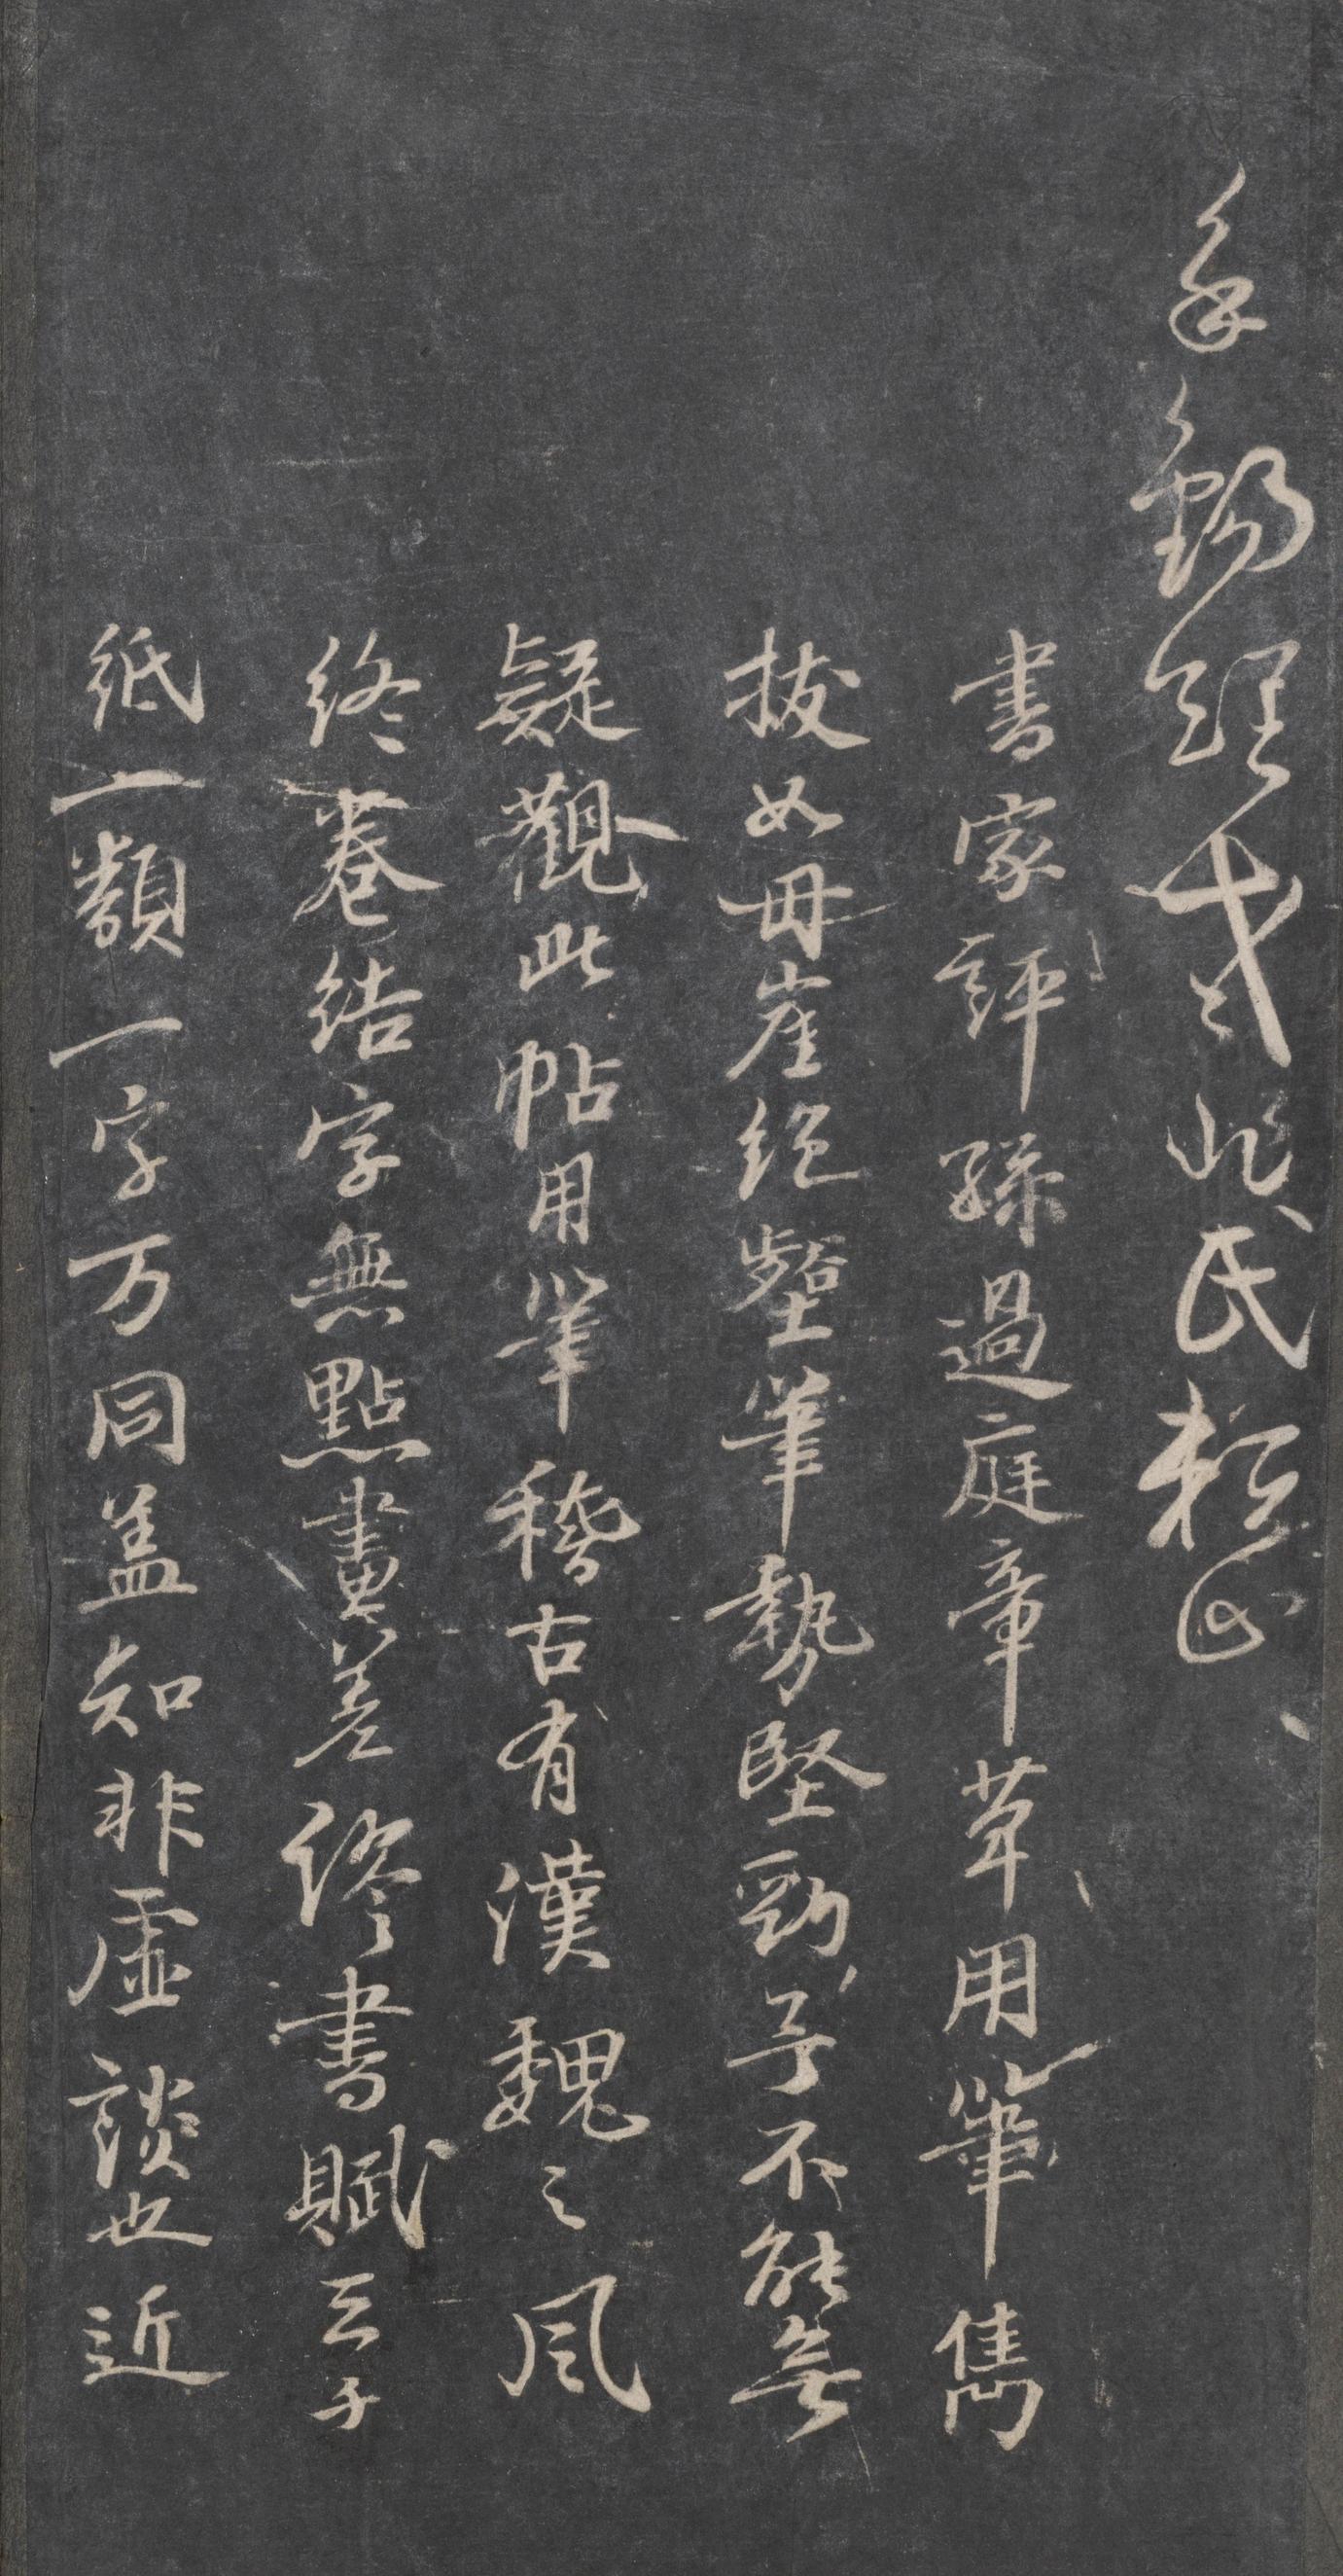 無錫經
書家評孫過庭章草用筆雋
拔如毋崖絕壑筆勢堅勁予不能無
疑觀此帖用筆稽古有漢魏之風
終卷結字無點畫差繆書賦云千
紙一類一字万同盖知非虛談也近